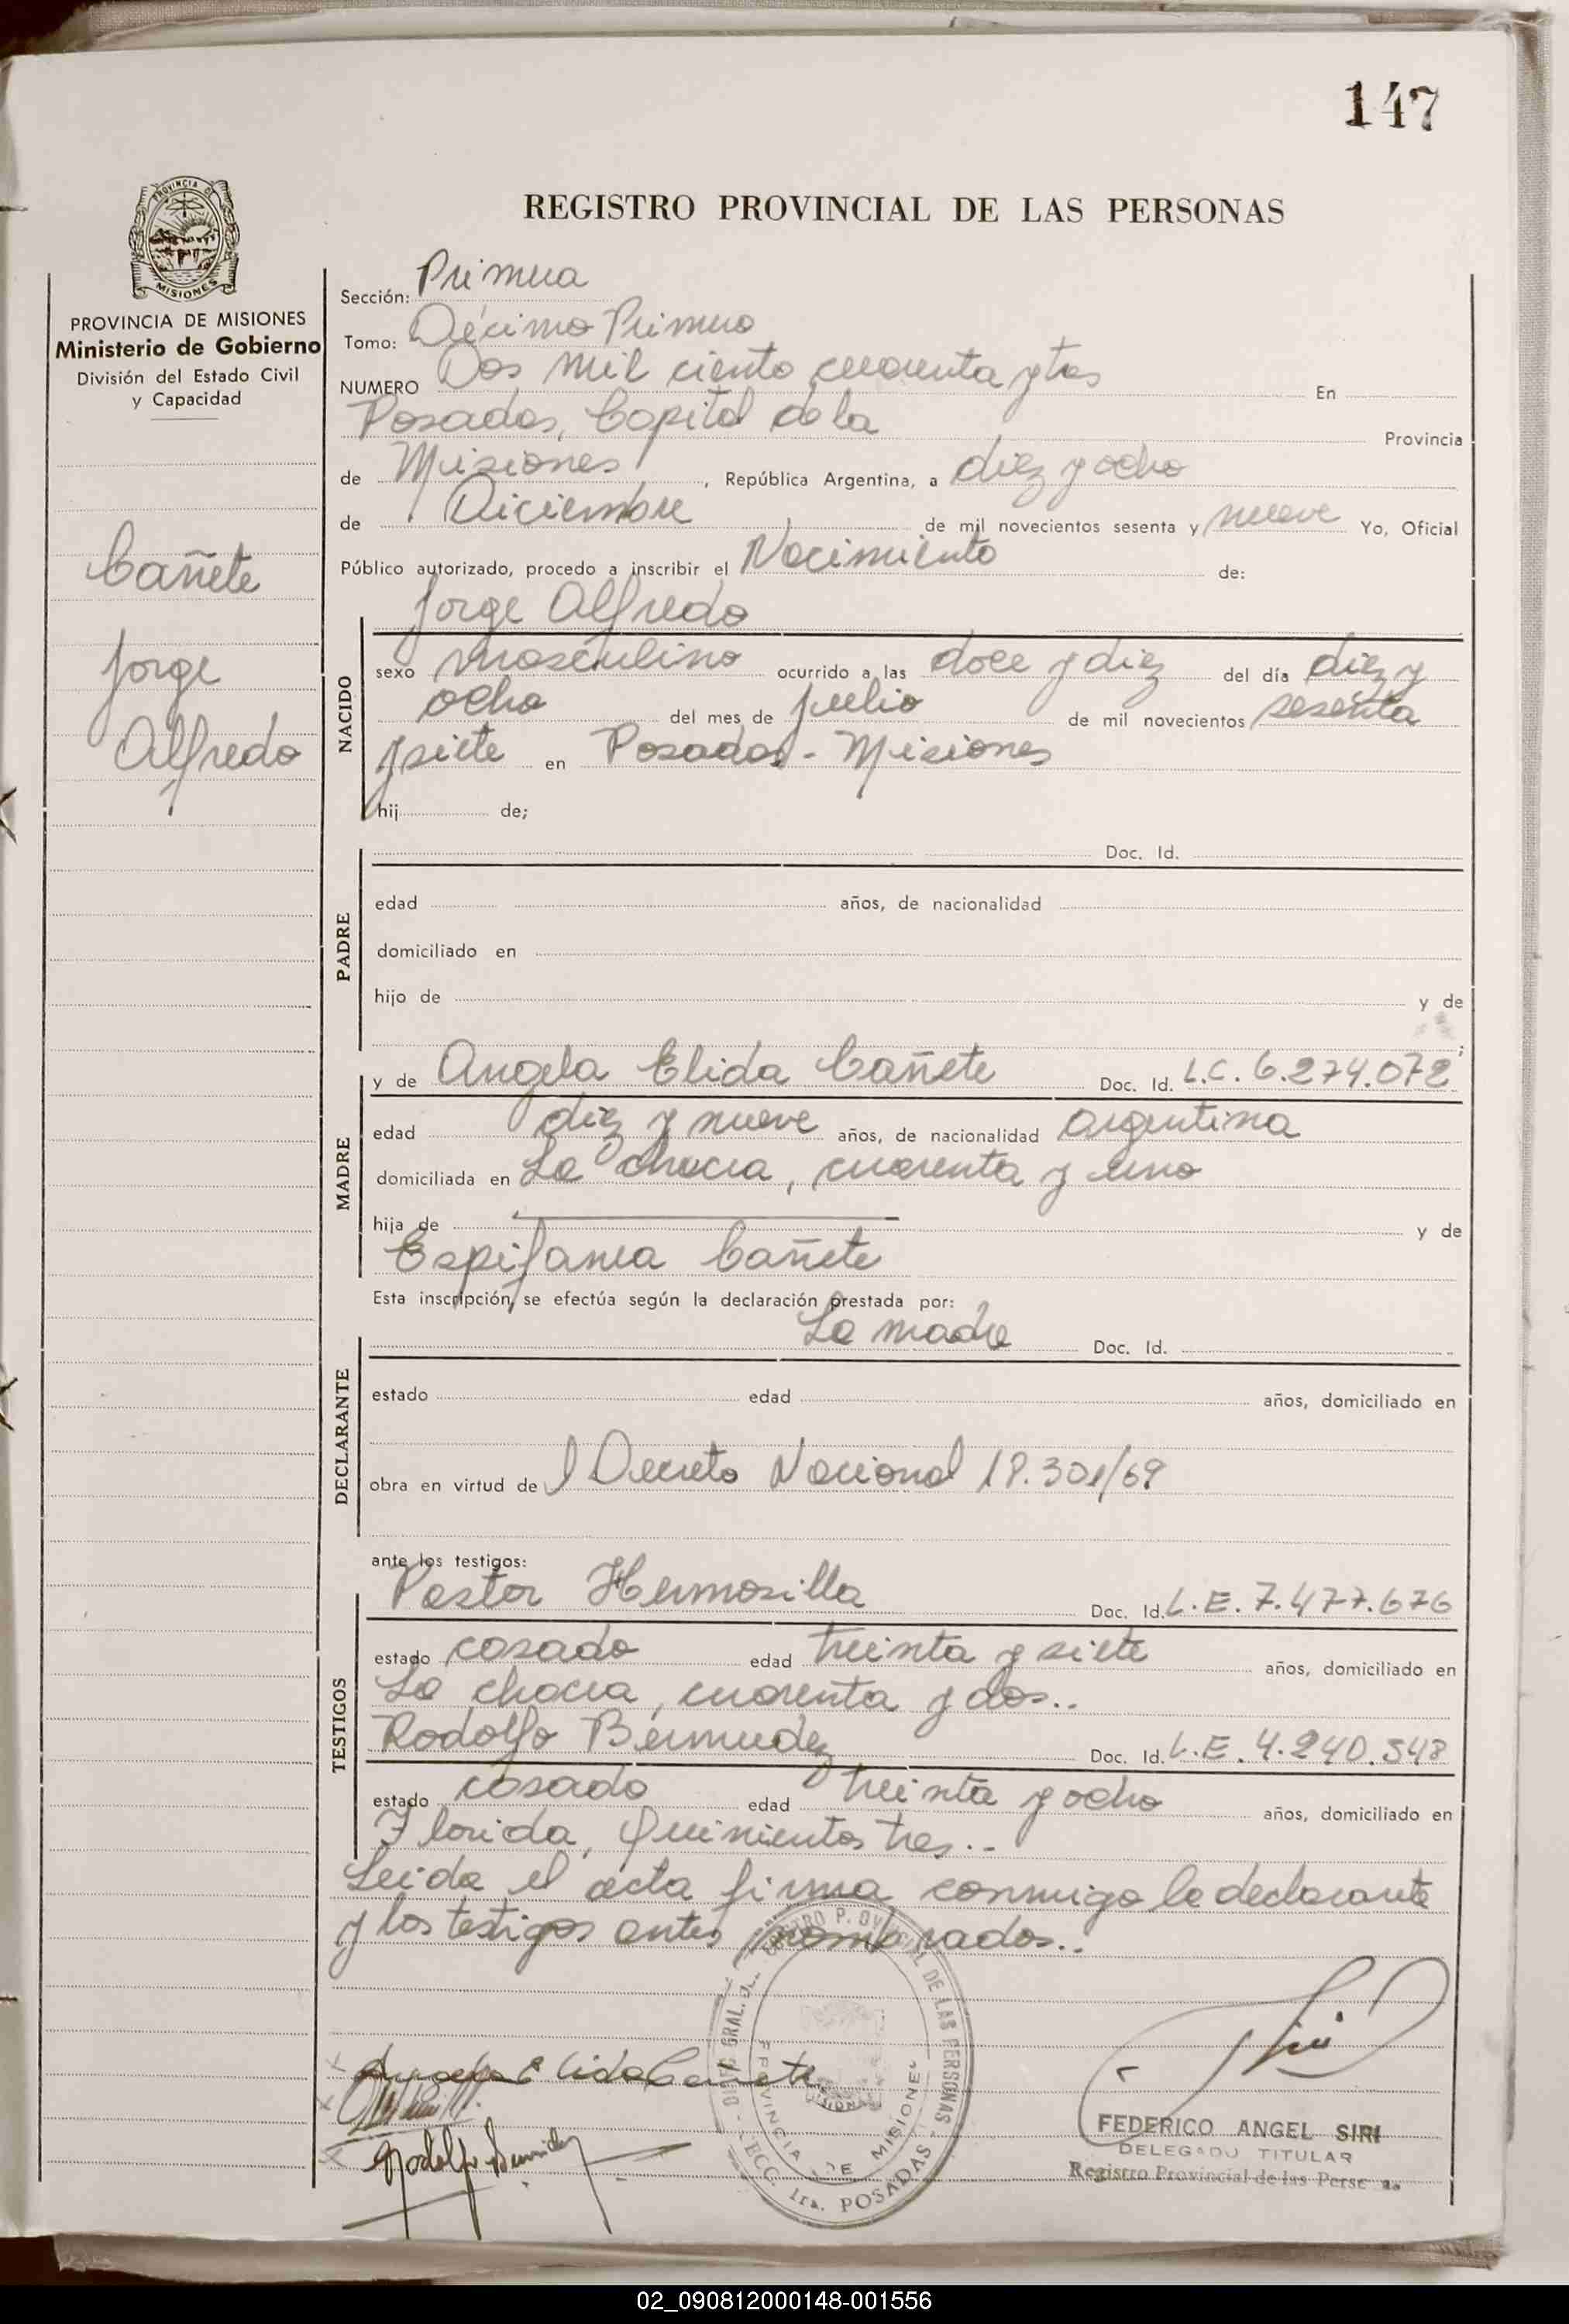 147
REGISTRO PROVINCIAL DE LAS PERSONAS
PROVINCIA DE MISIONES
PROVINCIA DE MISIONES
Ministerio de Gobierno
División del Estado Civil
y Capacidad
Cañete
Jorge
Alfredo
Sección: Primera
Tomo: Décimo Primero
NUMERO Dos mil ciento cuarenta y tres En
Posadas, Capital de la Provincia
de Misiones, República Argentina, a diez y ocho
de Diciembre de mil novecientos sesenta y nueve Yo, Oficial
Público autorizado, procedo a inscribir el Nacimiento de:
Jorge Alfredo
NACIDO
sexo masculino ocurrido a las doce y diez del día diez y
ocho del mes de julio de mil novecientos sesenta
y siete en Posadas - Misiones
hij de;
PADRE
Doc. Id.
edad años, de nacionalidad
domiciliado en
hijo de y de
MADRE
y de Angela Elida Cañete Doc. Id. L.C. 6.274.072
edad diez y nueve años, de nacionalidad argentina
domiciliada en La chacra, cuarenta y uno
hija de y de
Espifania Cañete
Esta inscripción, se efectúa según la declaración prestada por:
DECLARANTE
La madre Doc. Id.
estado edad años, domiciliado en
obra en virtud del Decreto Nacional 18.301/69
ante los testigos:
TESTIGOS
Pastor Hermosilla Doc. Id. L.E. 7.477.676
estado casado edad treinta y siete años, domiciliado en
La chacra, cuarenta y dos..
Rodolfo Bermudez Doc. Id. L.E. 4.240.548
estado casado edad treinta y ocho años, domiciliado en
Florida, Quinientos tres..
Leida el acta firma conmigo la declarante
y los testigos antes nombrados..
Angela Elida Cañete
Rodolfo Bermudez
GRAL. PROVINCIAL DE LAS PERSONAS - SECC. 1ra. POSADAS
PROVINCIA DE MISIONES
FEDERICO ANGEL SIRI
DELEGADO TITULAR
Registro Provincial de las Personas
02_090812000148-001556